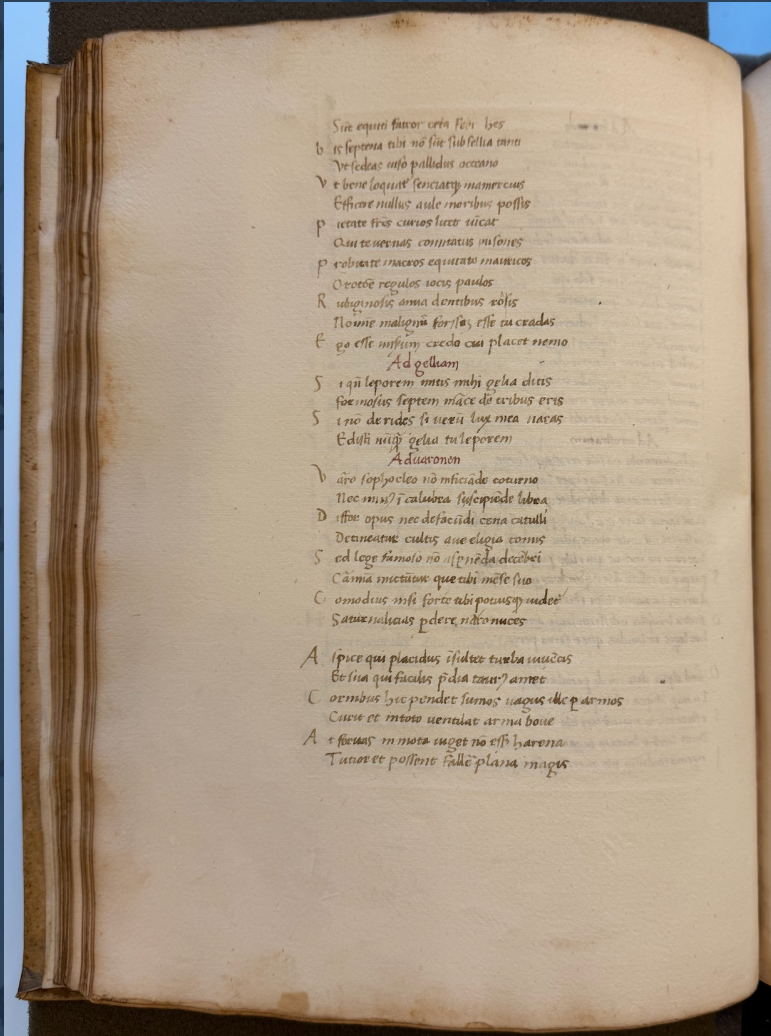 Sūt equiti fateor
b is septena tibi nō sūt subsellia tanti
Vt sedeas uiso pallidus occeano
V t bene loquat᷑ senciatq; mamercus
Efficere nullus aule moribus possis
p ietate frēs curios licet uīcat
p robitate macros equitate mauricos
Oratōe regulos iocis paulos
R ubiginosis dentibus rōsis
esse tu credas
E go esse misum credo cui placet nemo
Ad gelliam
S i qn̄ leporem mitis mihi gelia dicis
formosus septem māce de tribus eris
S i nō derides si verū lux mea naras
Edisti nūq̄ gelia tu leporem
Ad uaronen
V aro sophocleo nō inficiāde coturno
Nec minꝰ ī calubra suscipiēde libra
D iffor opus nec defacūdi cena catulli
Detineatur cultis aue comis
S ed lege fumoso nō aspnēda decēbri
Cāmia mictūtur que tibi mēse suo
C omodius nisi forte tibi potiusq; uidet᷑
Saturnalicias ꝑdere naro nuces
A spice qui placidus īsultet turba iuuēcis
Et sua qui facilis p̄dia taurꝰ amet
C ornibus hic pendet sumos uagus ille ꝑ armos
Curit et in toto uentilat arma boue
A t feritas in mota uiget nō harena
Tutior et possent fallē plana magis